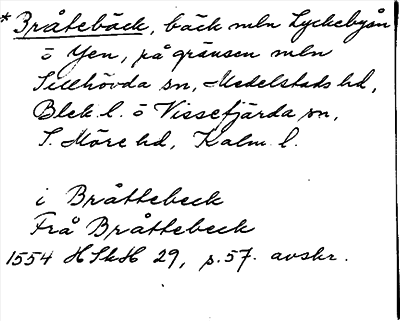 * Bråtebäck, bäck mln Lyckebyån
o Yen, på gränsen mln
Sillhövda sn, Medelstads hd,
Blek. l. o Vissefjärda sn,
S. Möre hd, Kalm. l.
i Bråttebeck
Från Bråttebeck
1554 HSkH 29, s. 57. avskr.